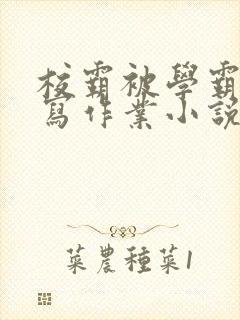 校霸被學霸
寫作業小說
菜農種菜1